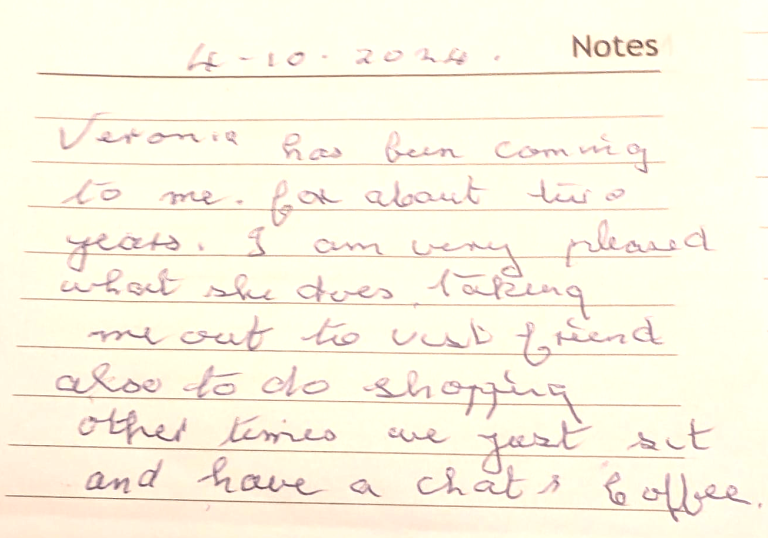 4-10.2024. Notes
Veronia has been coming
to me. for about two
years. I am very pleased
what she does, taking
me out to visit friend
also to do shopping
other times we just sit
and have a chat & Coffee.